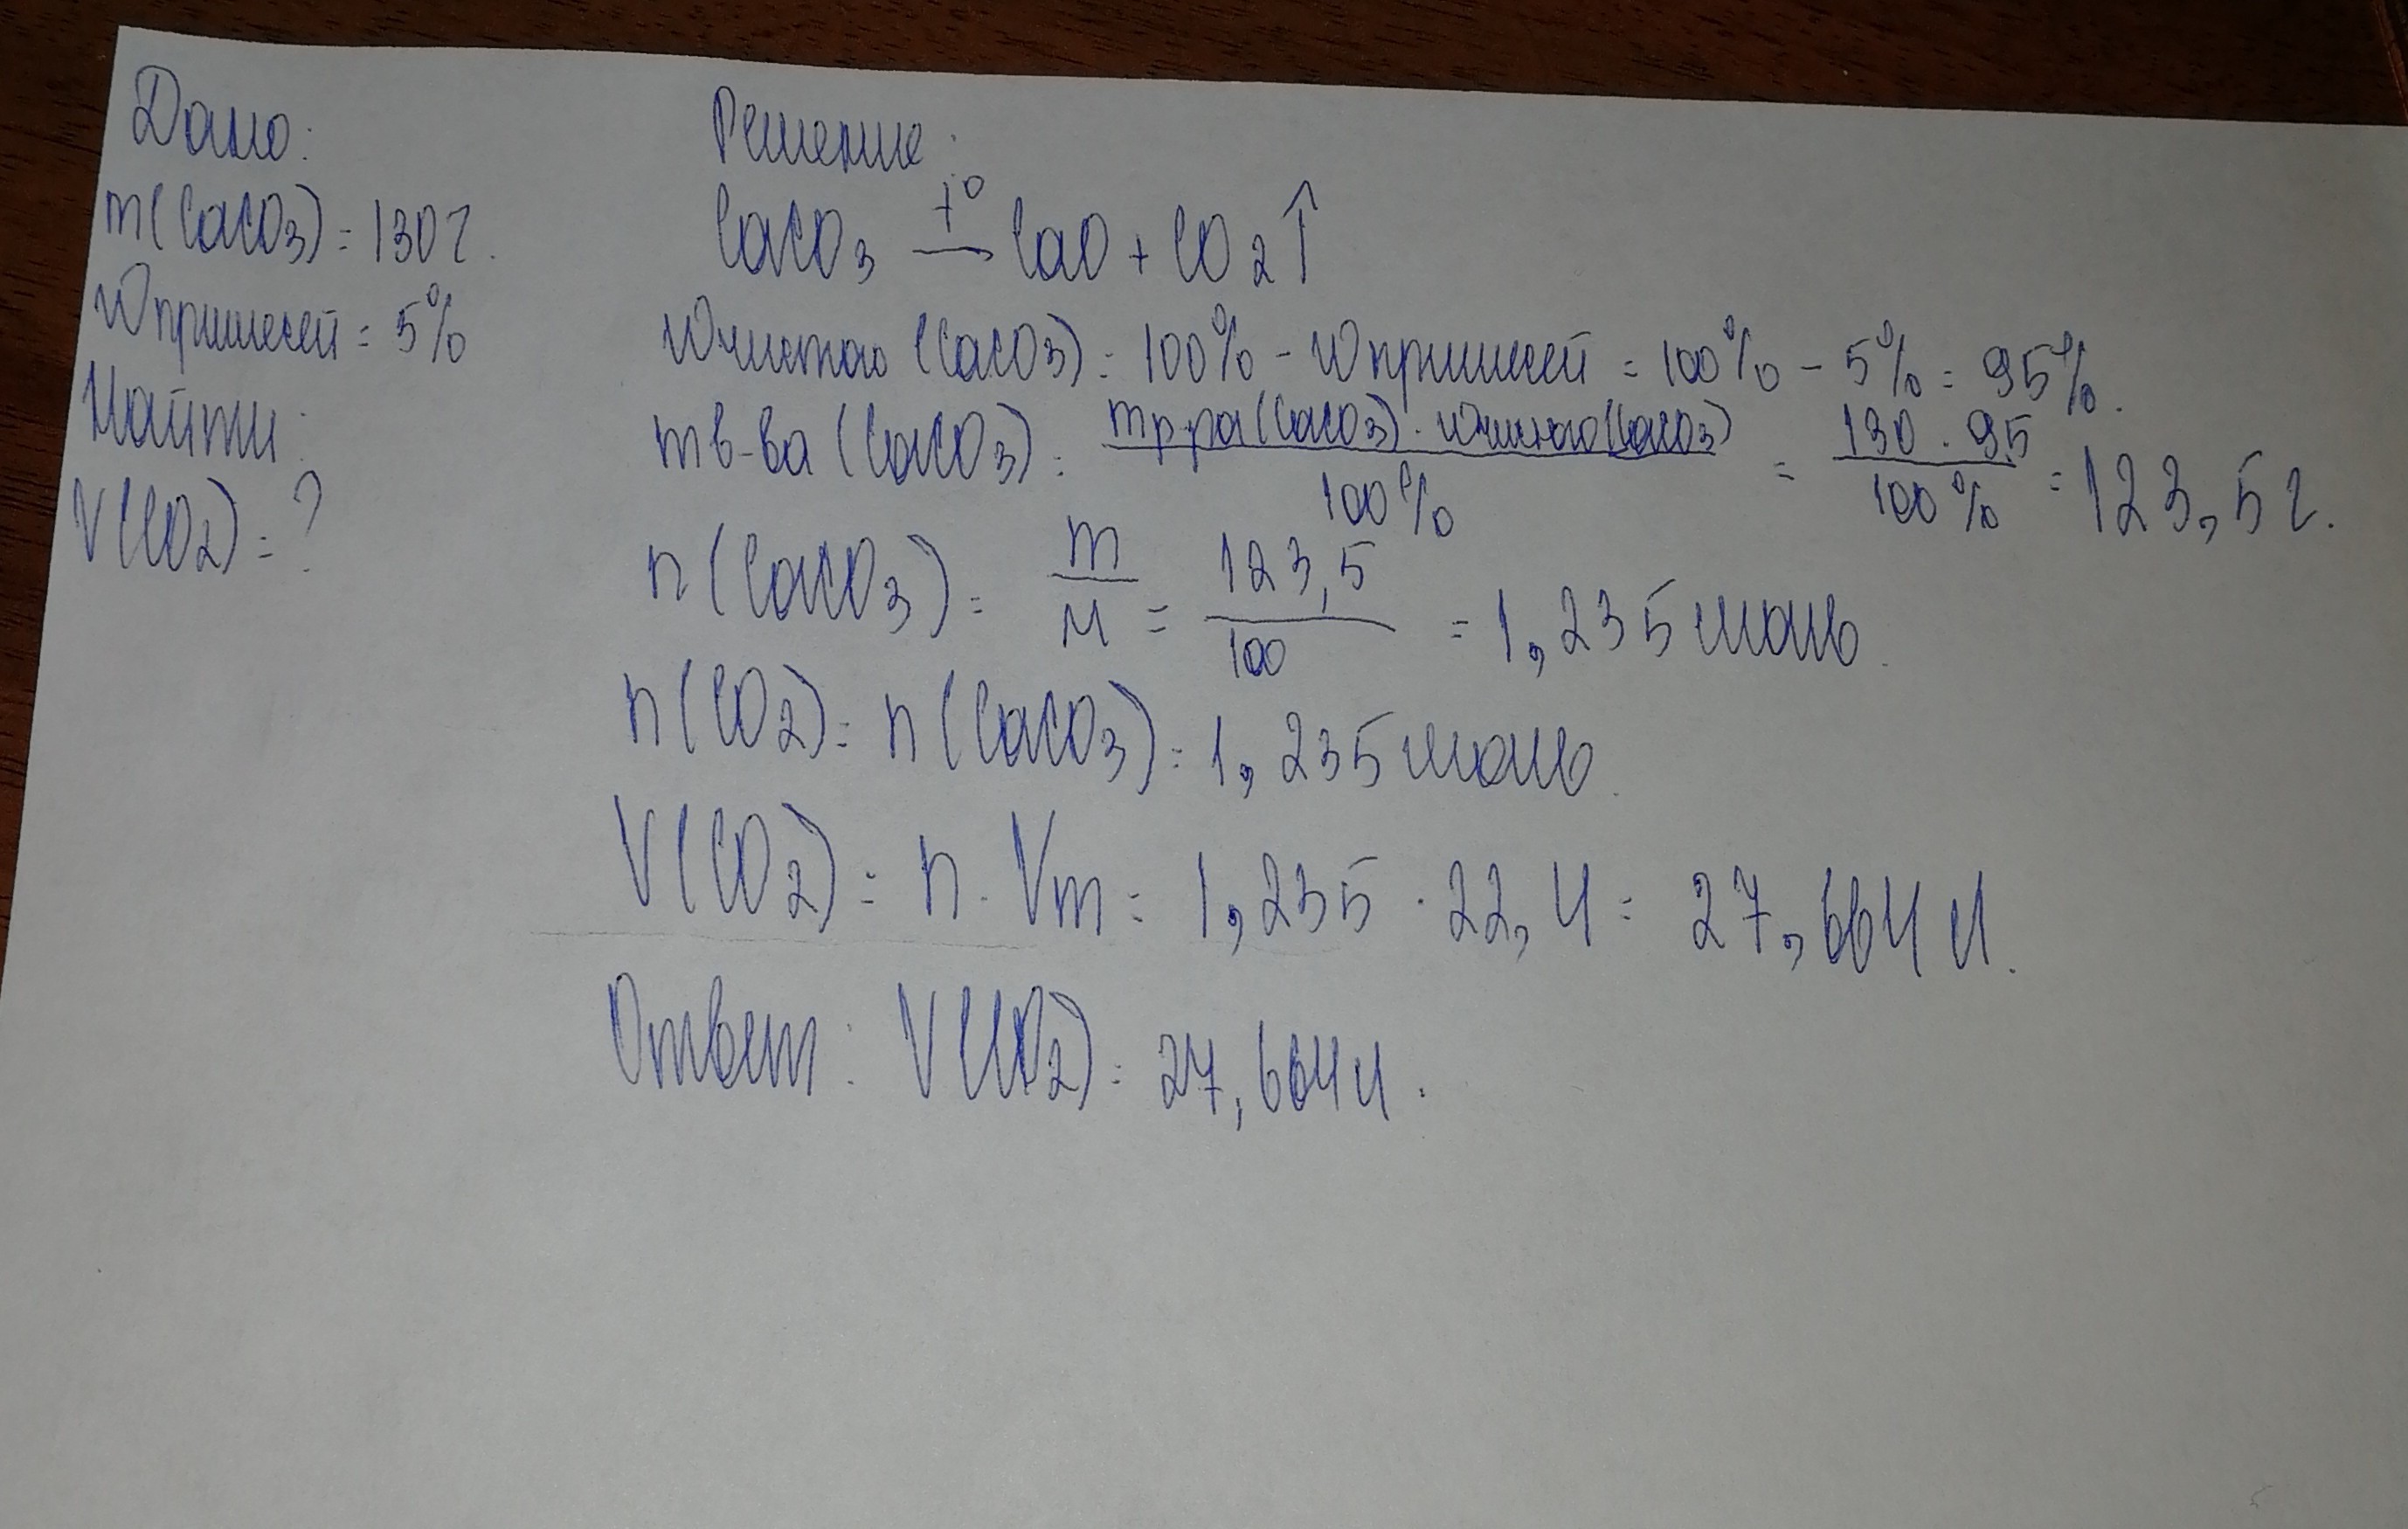 Дано:
m(CaCO3) = 130г.
Wпримесей = 5%
Найти:
V(CO2) = ?
Решение:
CaCO3 —t°→ CaO + CO2↑
Wчистого (CaCO3) = 100% - Wпримесей = 100% - 5% = 95%.
mв-ва (CaCO3) = mр-ра(CaCO3) · Wчистого(CaCO3) / 100% = 130 · 95 / 100% = 123,5г.
n(CaCO3) = m / M = 123,5 / 100 = 1,235моль.
n(CO2) = n(CaCO3) = 1,235моль.
V(CO2) = n · Vm = 1,235 · 22,4 = 27,664л.
Ответ: V(CO2) = 27,664л.